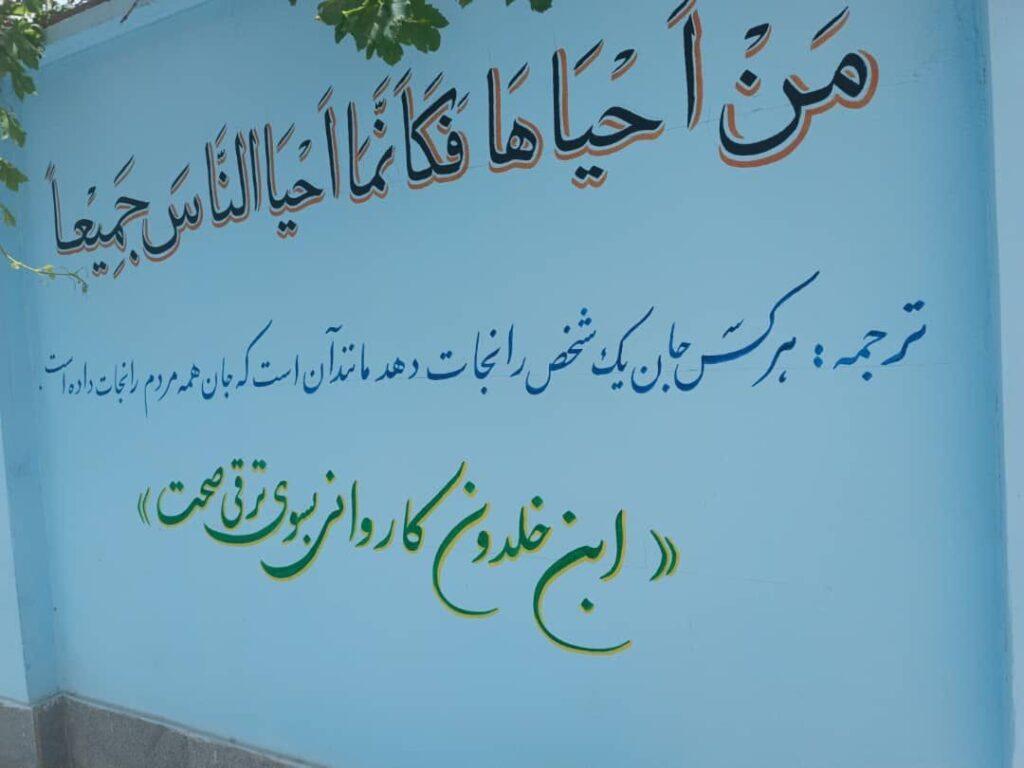 مَنْ اَحْيَاهَا فَكَاَنَّمَا اَحْيَا النَّاسَ جَمِيْعاً
ترجمه : هر کس جان یک شخص را نجات دهد مانند آن است که جان همه مردم را نجات داده است.
« ابن خلدون کاروانی بسوی ترقی صحت »